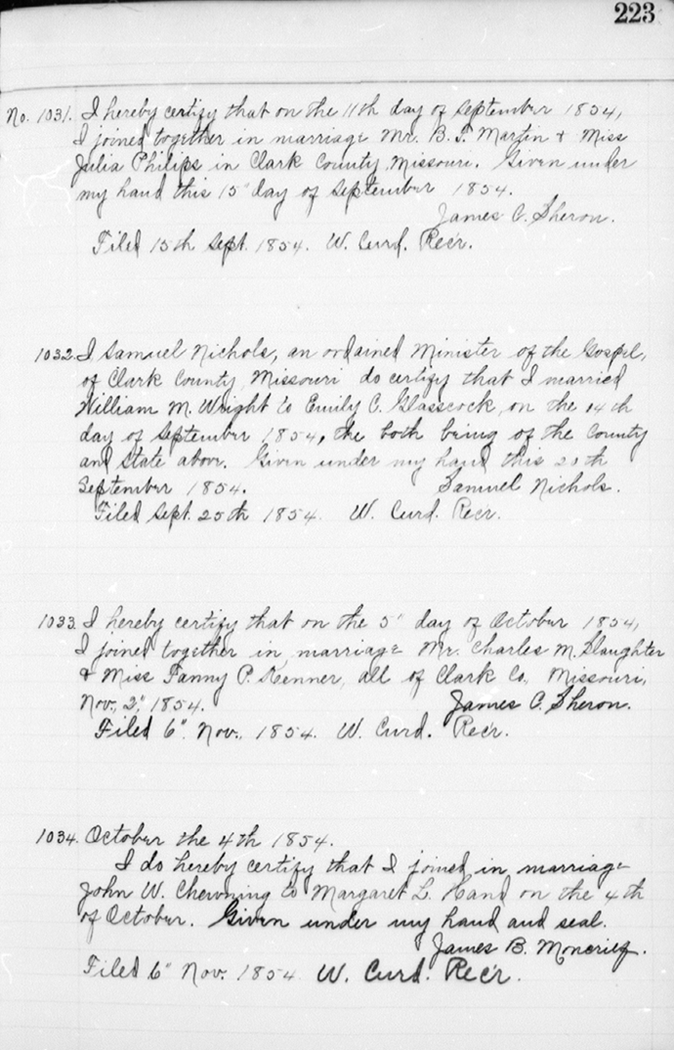 223
No. 1031. I hereby certify that on the 11th day of September 1854,
I joined together in marriage Mr. B. F. Martin & Miss
Julia Philips in Clark County Missouri. Given under
my hand this 15" day of September 1854.
James C. Sheron.
Filed 15th Sept. 1854. W. Curd. Rec'r.
1032. I Samuel Nichols, an ordained Minister of the Gospel,
of Clark County Missouri do certify that I married
William M. Wright to Emily C. Glasscock, on the 14th
day of September 1854, the both being of the County
and State above. Given under my hand this 20th
September 1854. Samuel Nichols.
Filed Sept. 25th 1854. W. Curd. Rec'r.
1033. I hereby certify that on the 5" day of October 1854,
I joined together in marriage Mr. Charles M. Slaughter
& Miss Fanny P. Kenner, all of Clark Co., Missouri,
Nov. 2," 1854. James C. Sheron.
Filed 6". Nov., 1854. W. Curd. Rec'r.
1034. October the 4th 1854.
I do hereby certify that I joined in marriage
John W. Chewning to Margaret L. Hand on the 4th
of October. Given under my hand and seal.
James B. Moncrief.
Filed 6" Nov. 1854 W. Curd. Rec'r.